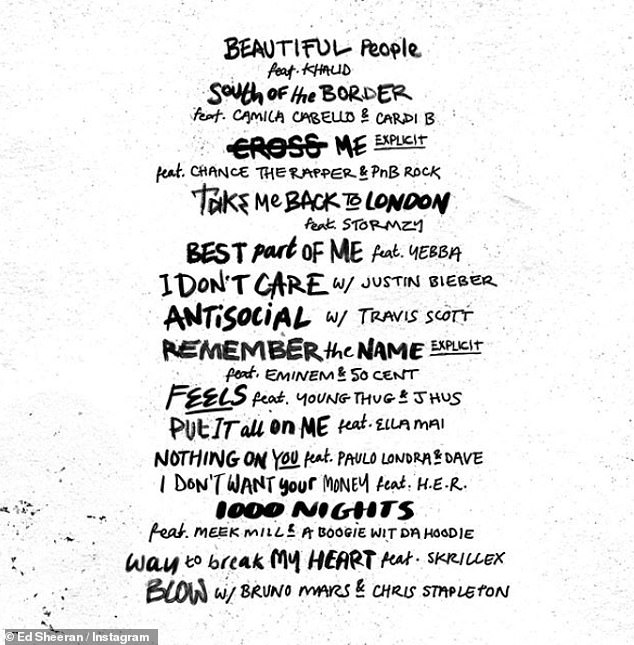 BEAUTIFUL People
feat. KHALID
South OF the BORDER
feat. CAMILA CABELLO & CARDI B
CROSS ME EXPLICIT
feat. CHANCE THE RAPPER & PnB ROCK
TAKE Me BACK TO LONDON
feat. STORMZY
BEST part OF ME feat. YEBBA
I DON'T CARE w/ JUSTIN BIEBER
ANTiSOCIAL w/ TRAVIS SCOTT
REMEMBER the NAME EXPLICIT
feat. EMINEM & 50 CENT
FEELS feat. YOUNG THUG & J HUS
PUt IT all on ME feat. ELLA MAI
NOTHING ON YOU feat. PAULO LONDRA & DAVE
I DON'T WANT your MONEY feat. H.E.R.
1000 NIGHTS
feat. MEEK MILL & A BOOGIE WIT DA HOODIE
way to break MY HEART feat. SKRILLEX
BLOW w/ BRUNO MARS & CHRIS STAPLETON
© Ed Sheeran / Instagram